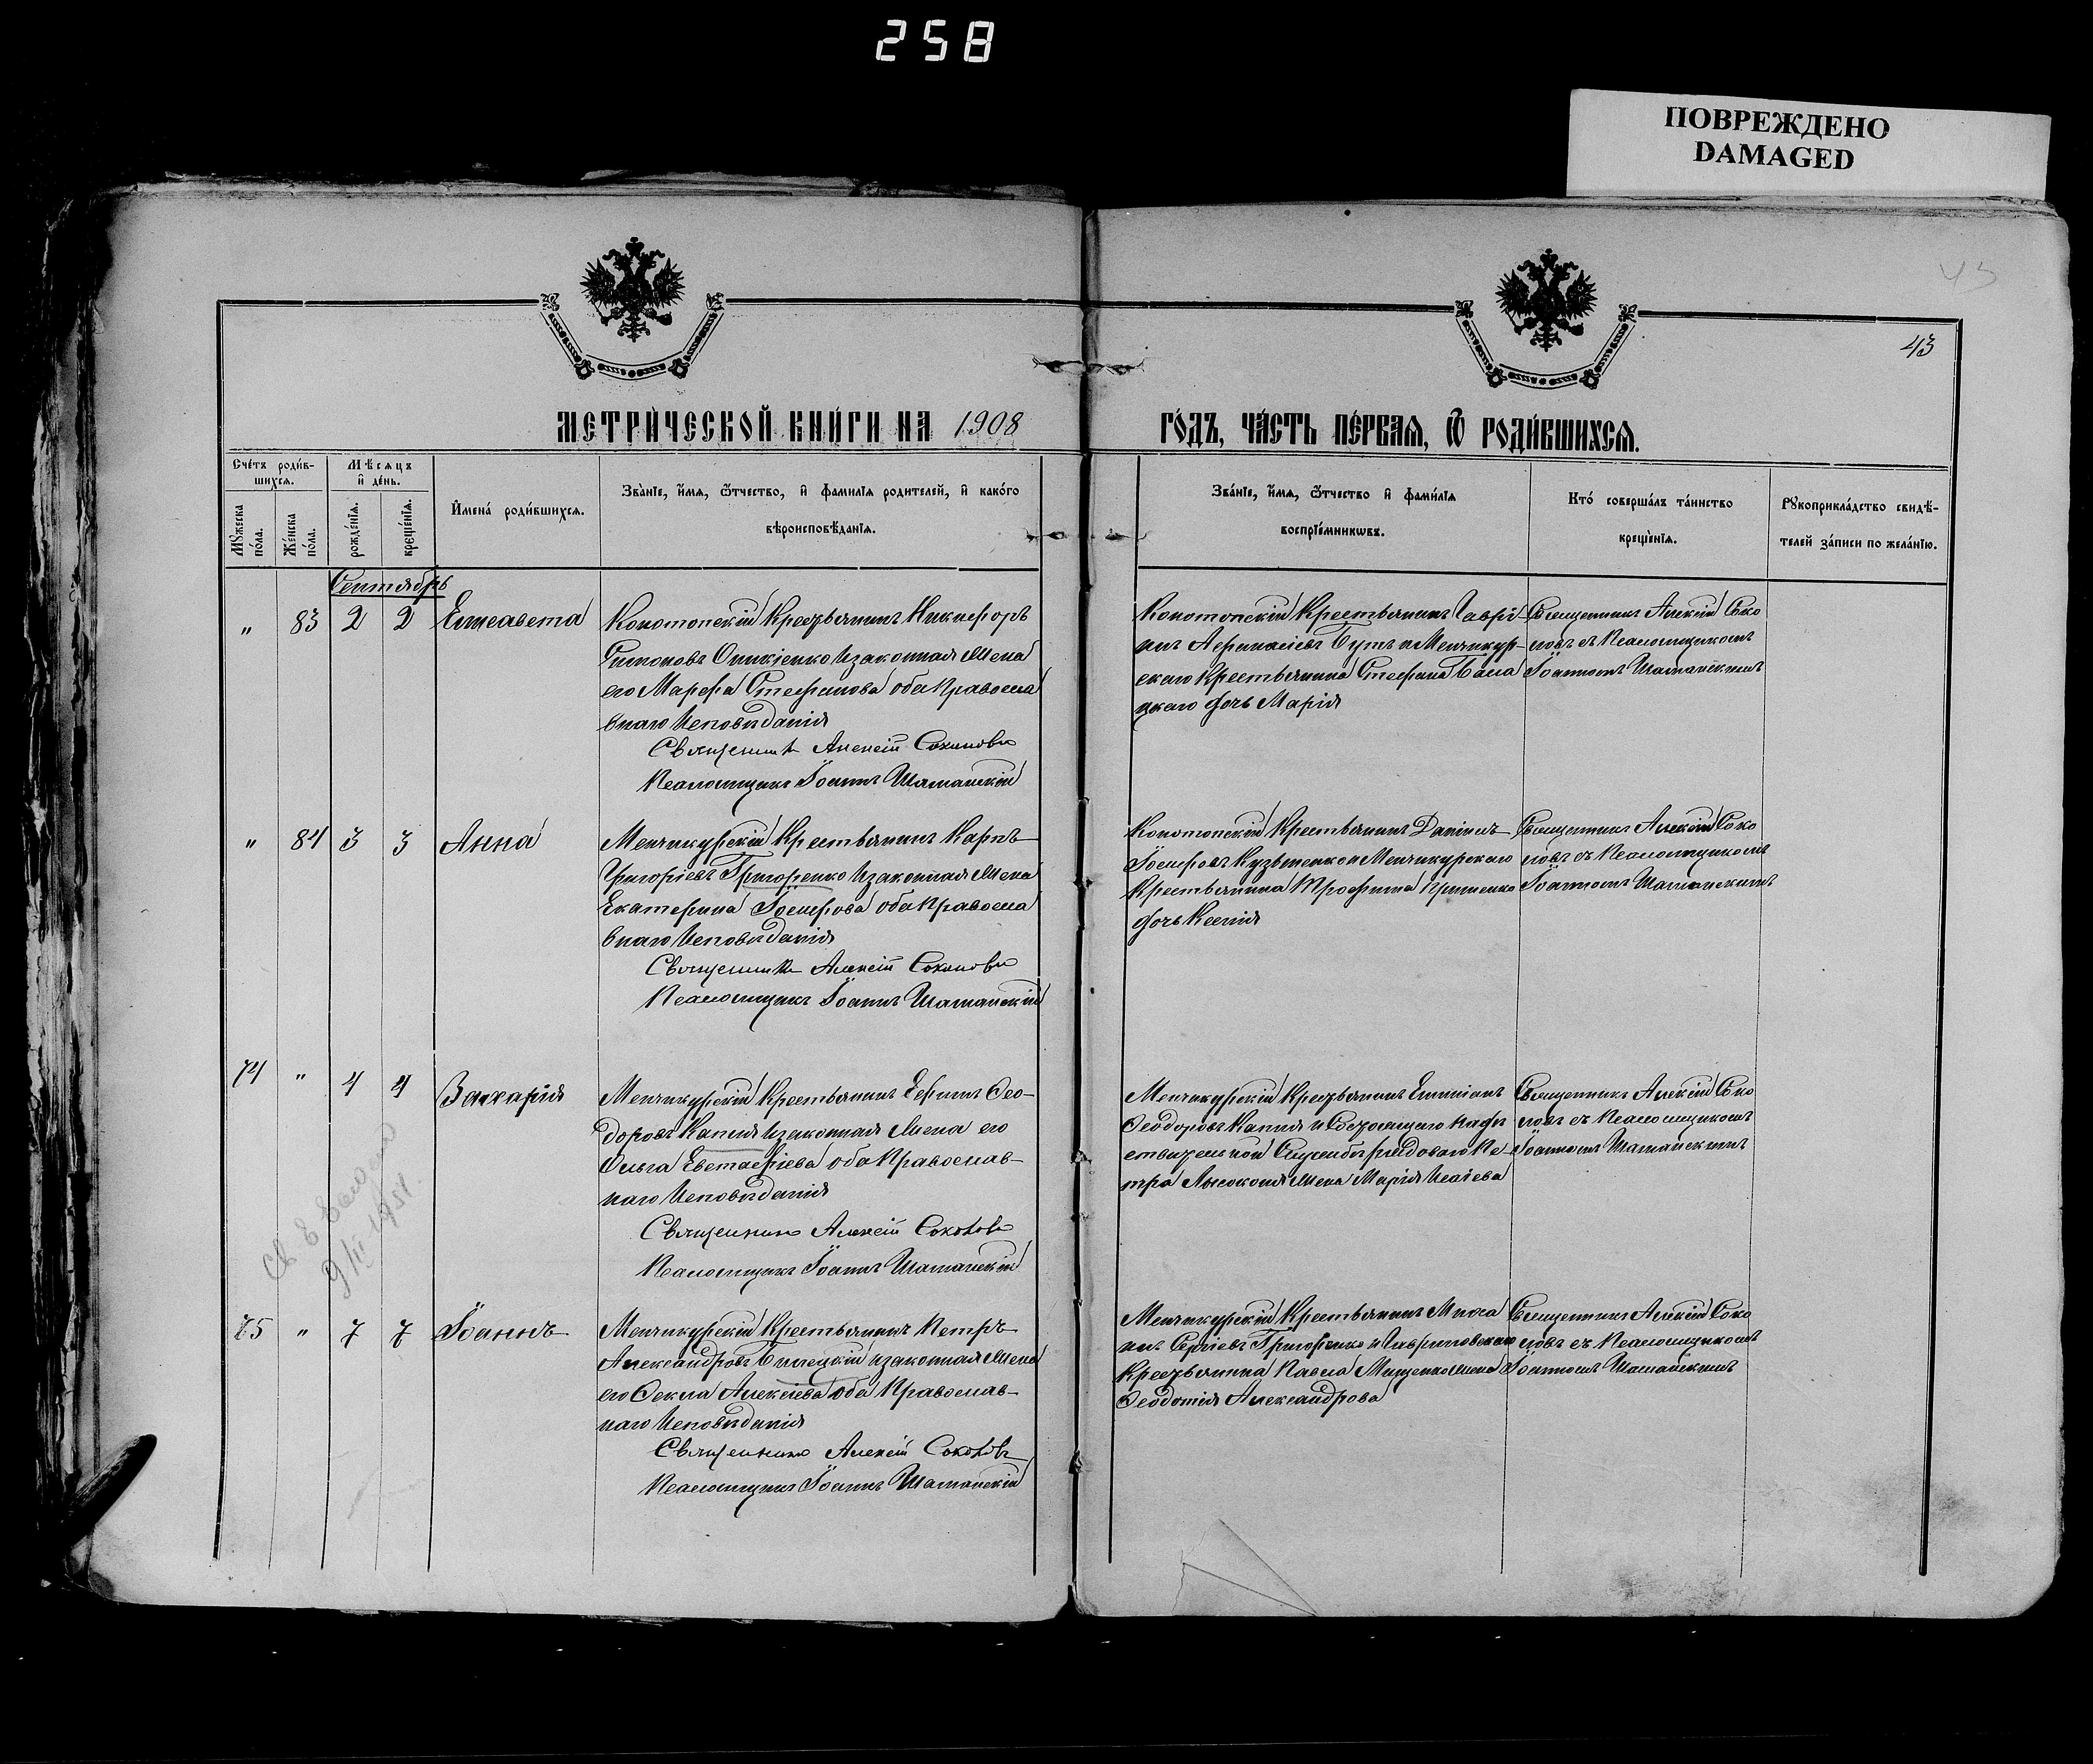 258
ПОВРЕЖДЕНО
DAMAGED
43
43
МЕТРИ́ЧЕСКОЙ КНИ́ГИ НА 1908
ГО́ДЪ, ЧА́СТЬ ПЕ́РВАЯ, Ѿ РОДИ́ВШИХСЯ.
Сче́тъ роди́в-
шихся.
Мѣ́сяцъ
и де́нь.
Мꙋжеска
по́ла.
Же́нска
по́ла.
рожде́нїя.
креще́нїя.
Имена́ роди́вшихся.
Зва́нїе, и́мя, ѻ́тчество, и фами́лїя родителей, и како́го
вѣроисповѣ́данїя.
Зва́нїе, и́мя, ѻ́тчество и фами́лїя
воспрїе́мникѡвъ.
Кто́ соверша́лъ та́инство
креще́нїя.
Рꙋкоприкла́дство свидѣ́-
телей за́писи по жела́нїю.
Сентябрь
" 83 2 2 Елисавета
Конотопскій Крестьянинъ Никифоръ
Симоновъ Оникіенко и законная жена
его Марфа Стефанова оба Правосла
внаго Исповѣданія
Священникъ Алексій Соколовъ
Псаломщикъ Іоаннъ Шаманскій
Конотопскій Крестьянинъ Гаврі-
илъ Афанасіевъ Бутъ и Менчикур-
скаго Крестьянина Стефана
цкаго дочь Марія
Священникъ Алексій Соко
ловъ съ Псаломщикомъ
Іоанномъ Шаманскимъ
" 84 3 3 Анна
Менчикурскій Крестьянинъ Карпъ
Григоріевъ Григоренко и законная жена
Екатерина Іосифова оба Правосла
внаго Исповѣданія
Священникъ Алексій Соколовъ
Псаломщикъ Іоаннъ Шаманскій
Конотопскій Крестьянинъ Даніилъ
Іосифовъ Кузьменко и Менчикурскаго
Крестьянина Трофима Гриненко
дочь Ксенія
Священникъ Алексій Соко
ловъ съ Псаломщикомъ
Іоанномъ Шаманскимъ
74 " 4 4 Захарія
Менчикурскій Крестьянинъ Ефимъ Ѳео-
доровъ Капля и законная жена его
Ольга Евстафіева оба Православ-
наго Исповѣданія
Священникъ Алексій Соколовъ
Псаломщикъ Іоаннъ Шаманскій
Менчикурскій Крестьянинъ Емиліанъ
Ѳеодоровъ Капля и Состоящаго на дѣй
ствительной Службѣ рядоваго Пе-
тра жена Марія Исаіева
Священникъ Алексій Соко
ловъ съ Псаломщикомъ
Іоанномъ Шаманскимъ
9/II 1951.
75 " 7 7 Іоаннъ
Менчикурскій Крестьянинъ Петръ
Александровъ Билецкій и законная жена
его Ѳекла Алексіева оба Православ-
наго Исповѣданія
Священникъ Алексій Соколовъ
Псаломщикъ Іоаннъ Шаманскій
Менчикурскій Крестьянинъ Миха
илъ Сергіевъ Григоренко и Гавриловскаго
Крестьянина Павла Мищенко жена
Ѳеодотія Александрова
Священникъ Алексій Соко
ловъ съ Псаломщикомъ
Іоанномъ Шаманскимъ